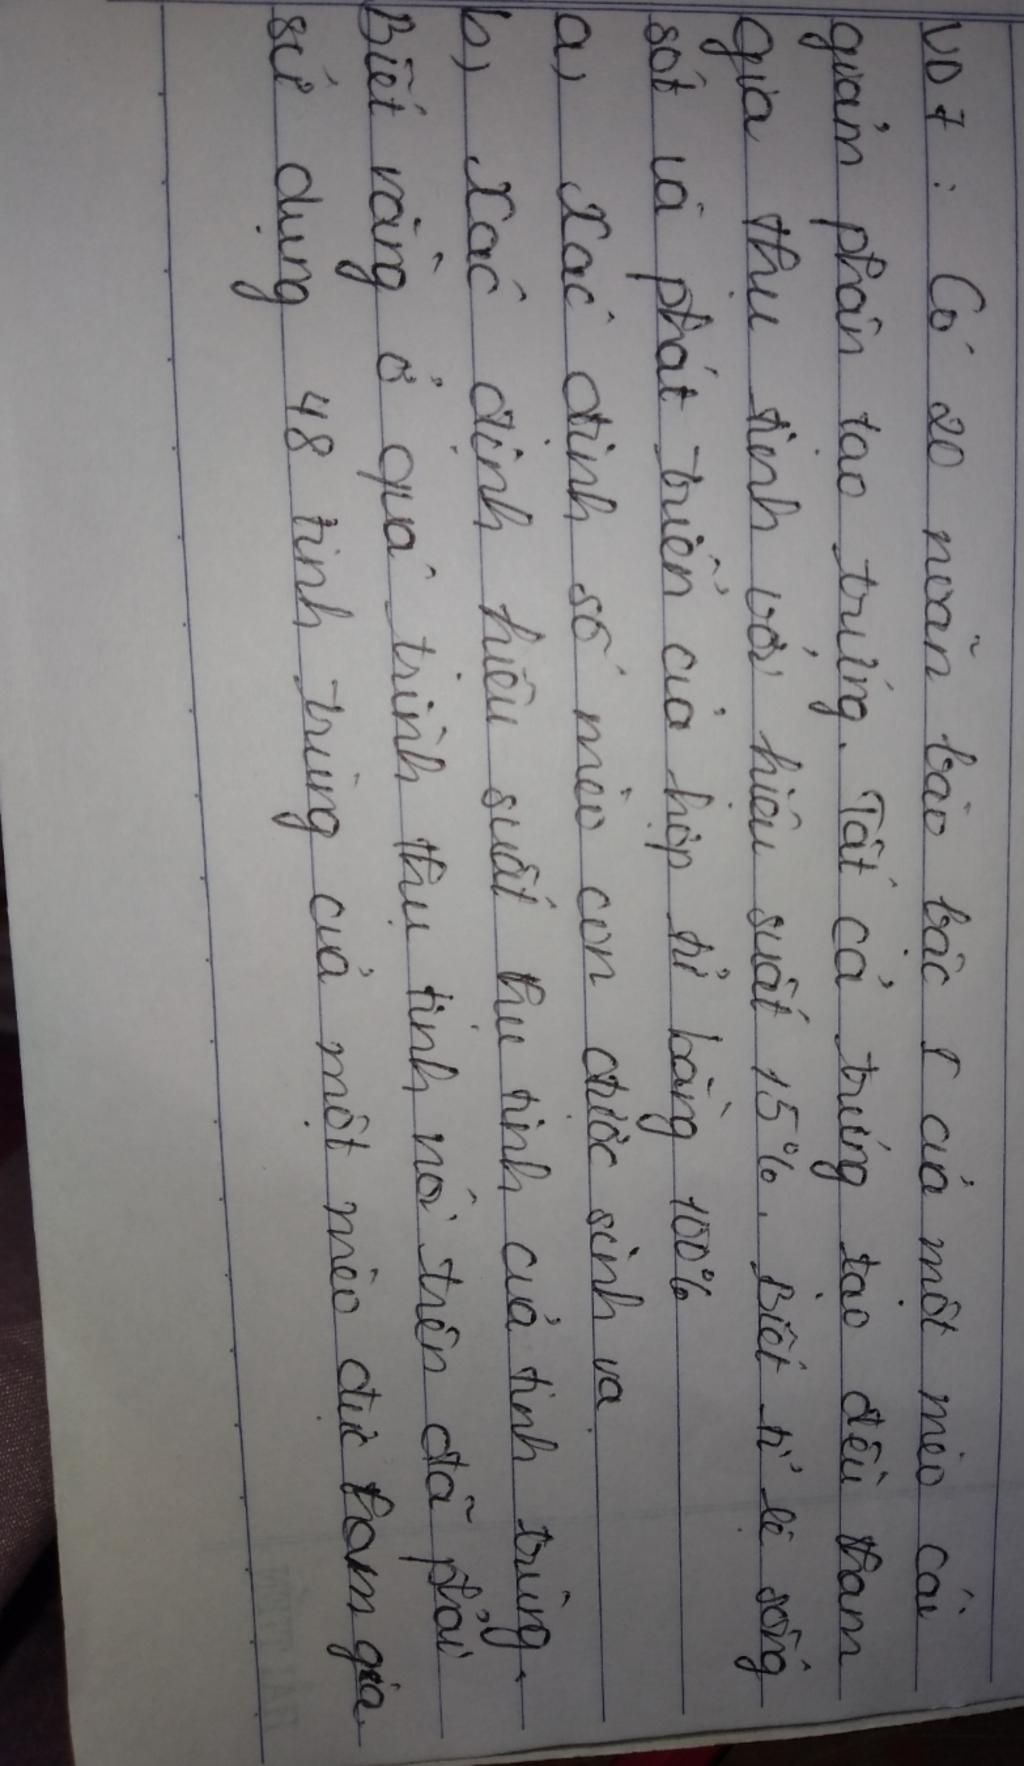 VD7: Có 20 noãn bào bậc 1 của một mèo cái
giảm phân tạo trứng. Tất cả trứng tạo đều tham
gia thụ tinh với hiệu suất 15%. Biết tỉ lệ sống
sót và phát triển của hợp tử bằng 100%
a) Xác định số mèo con được sinh ra
b) Xác định hiệu suất thu tinh của tinh trùng.
Biết rằng ở quá trình thụ tinh nói trên đã phải
sử dụng 48 tinh trùng của một mèo đực tham gia.